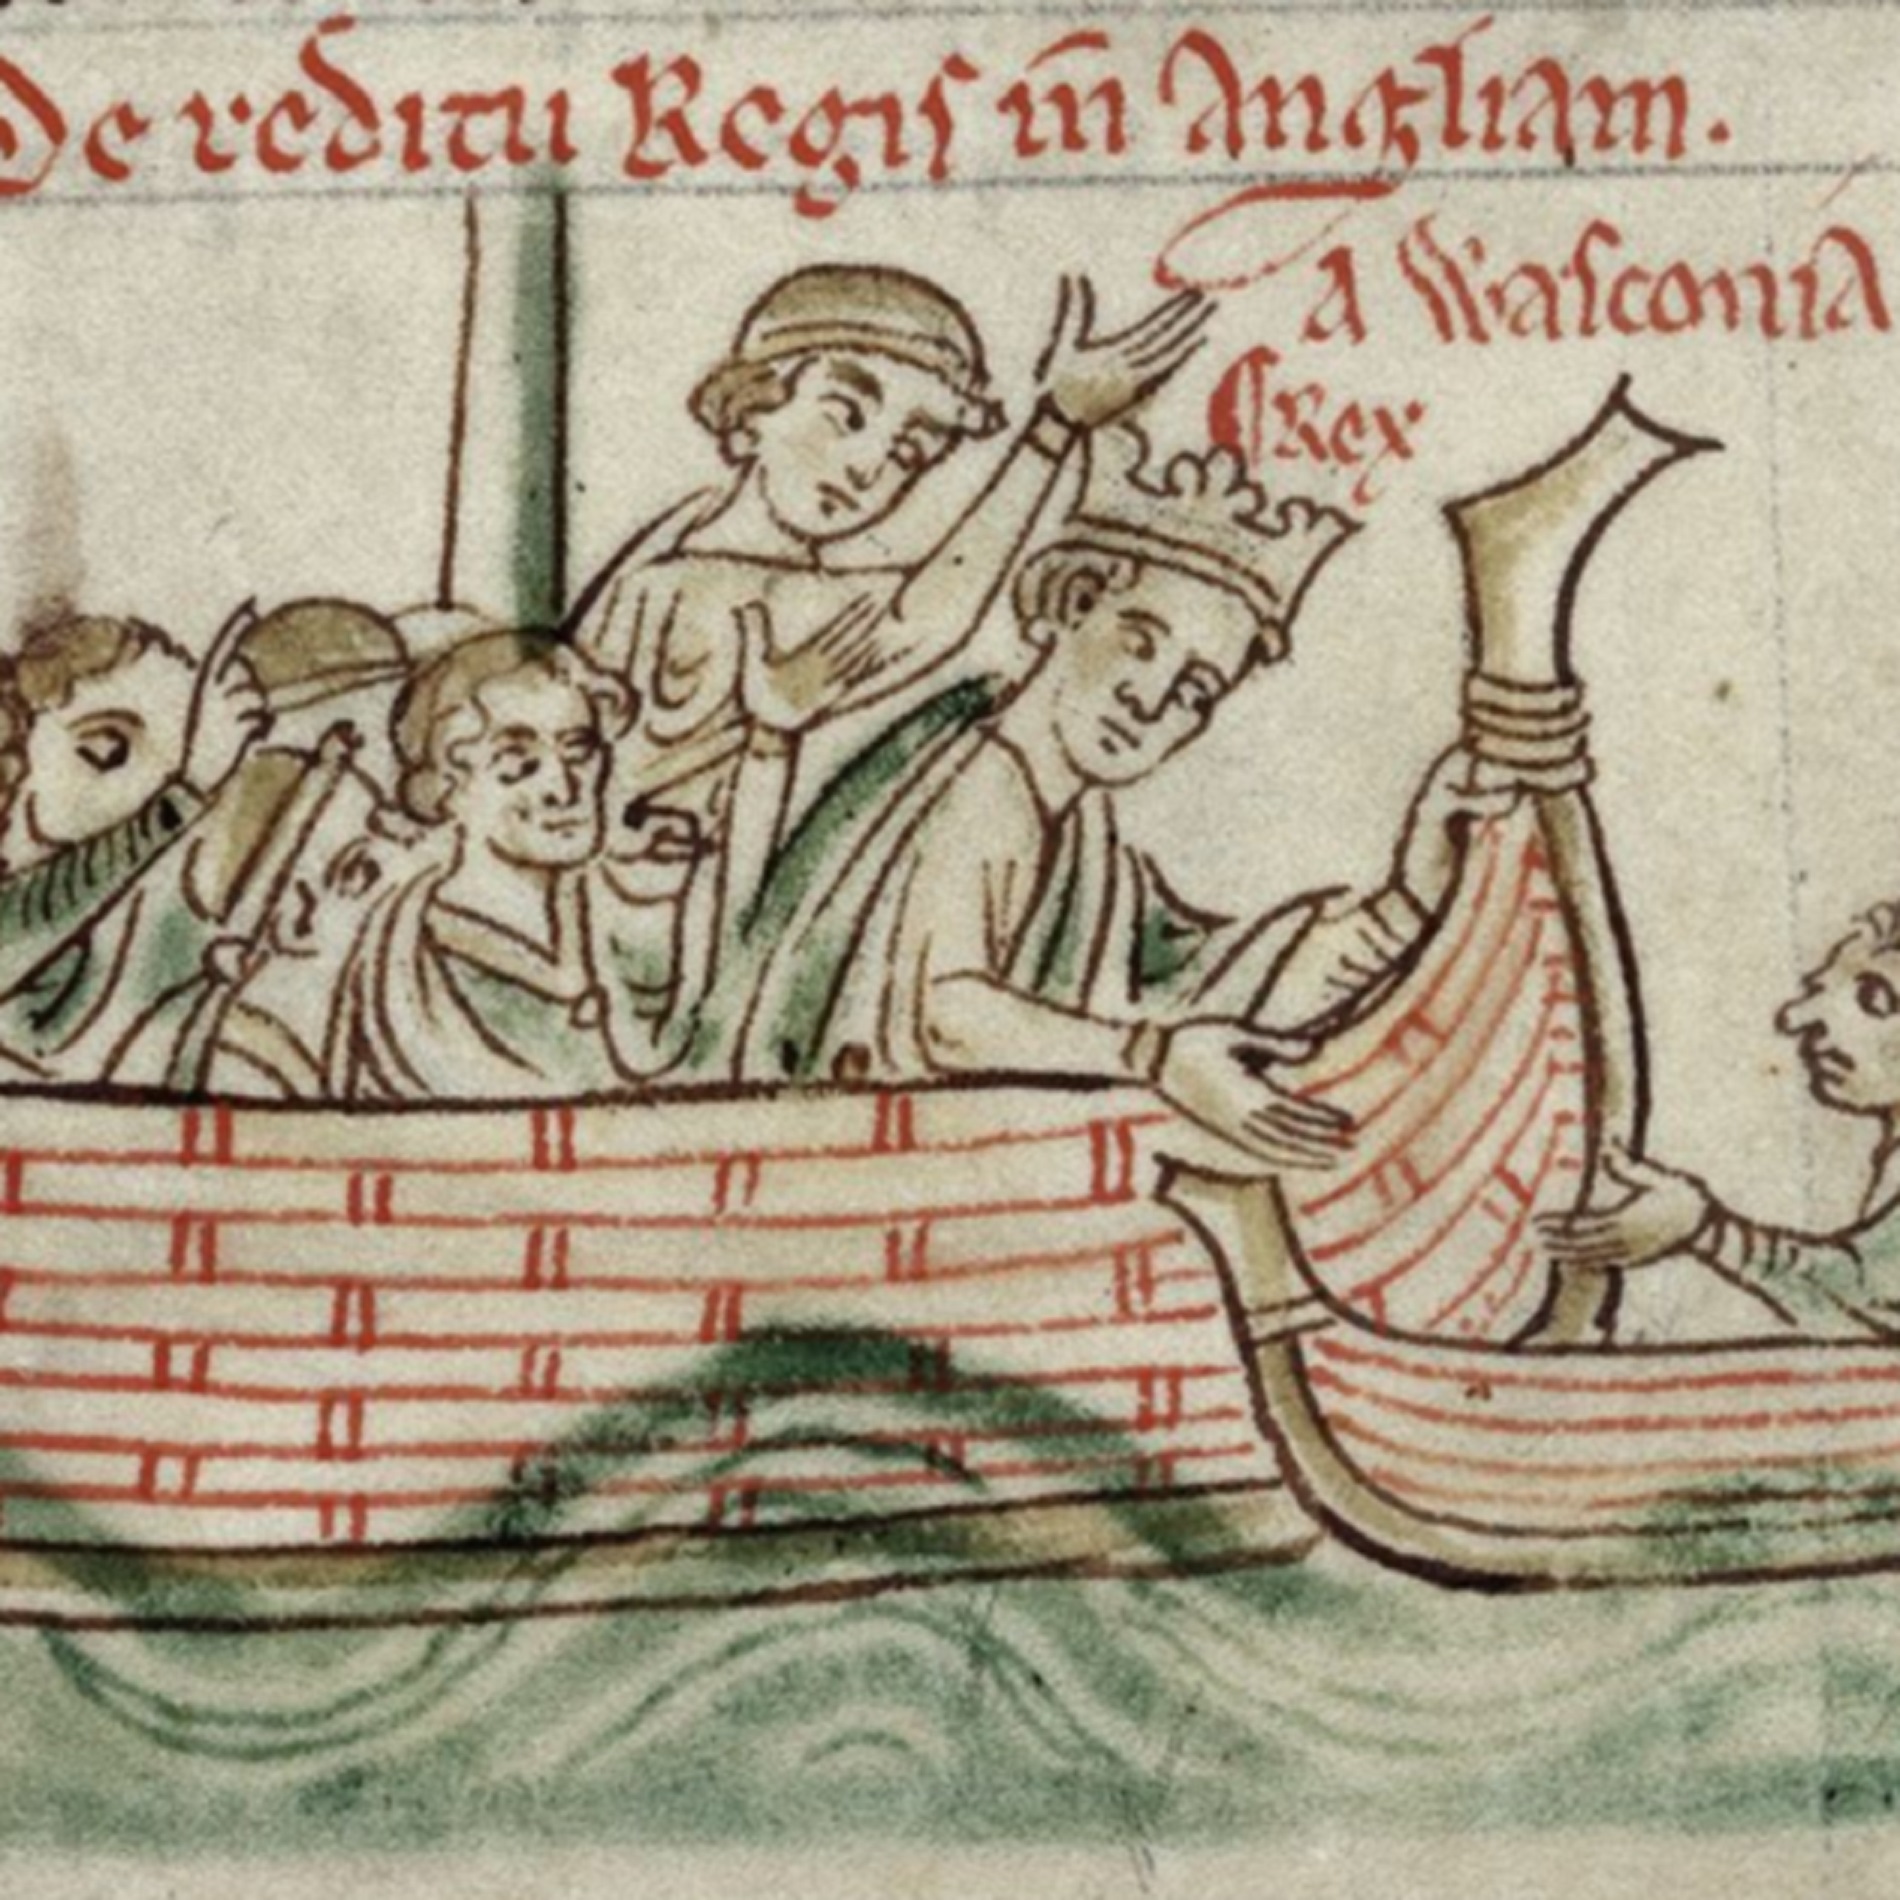 De reditu Regis in Angliam.
a Wasconia
Rex